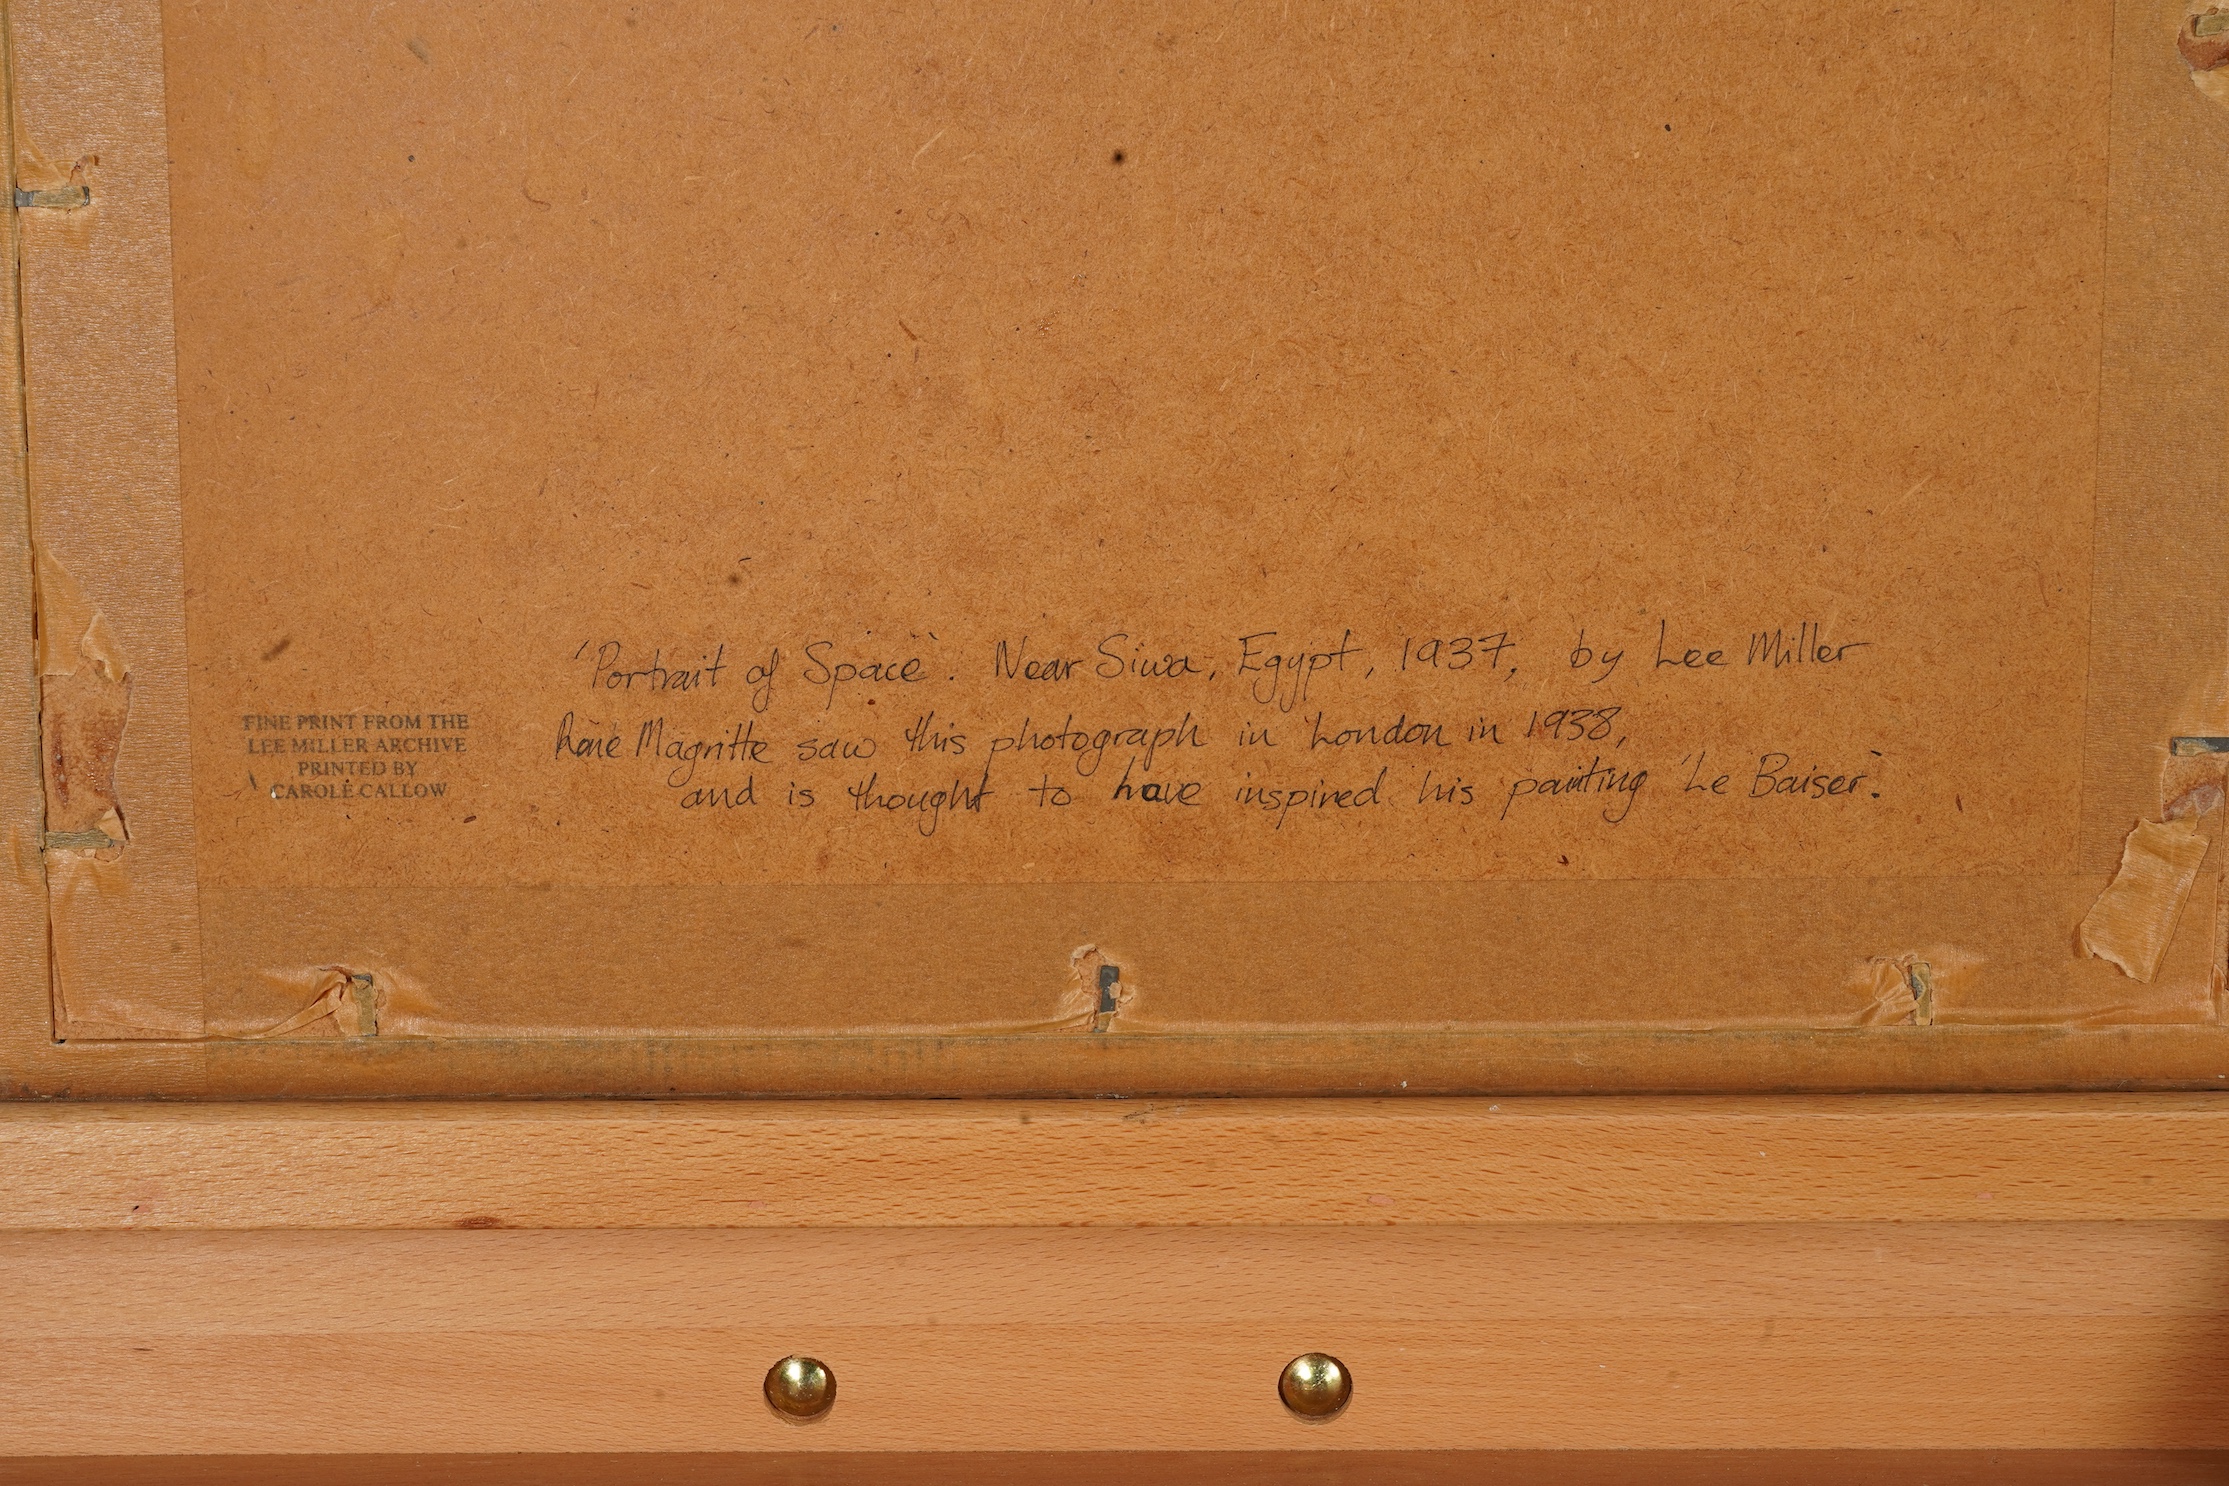 'Portrait of Space'. Near Siwa, Egypt, 1937, by Lee Miller
René Magritte saw this photograph in London in 1938,
and is thought to have inspired his painting 'Le Baiser'.
FINE PRINT FROM THE
LEE MILLER ARCHIVE
PRINTED BY
CAROLE CALLOW